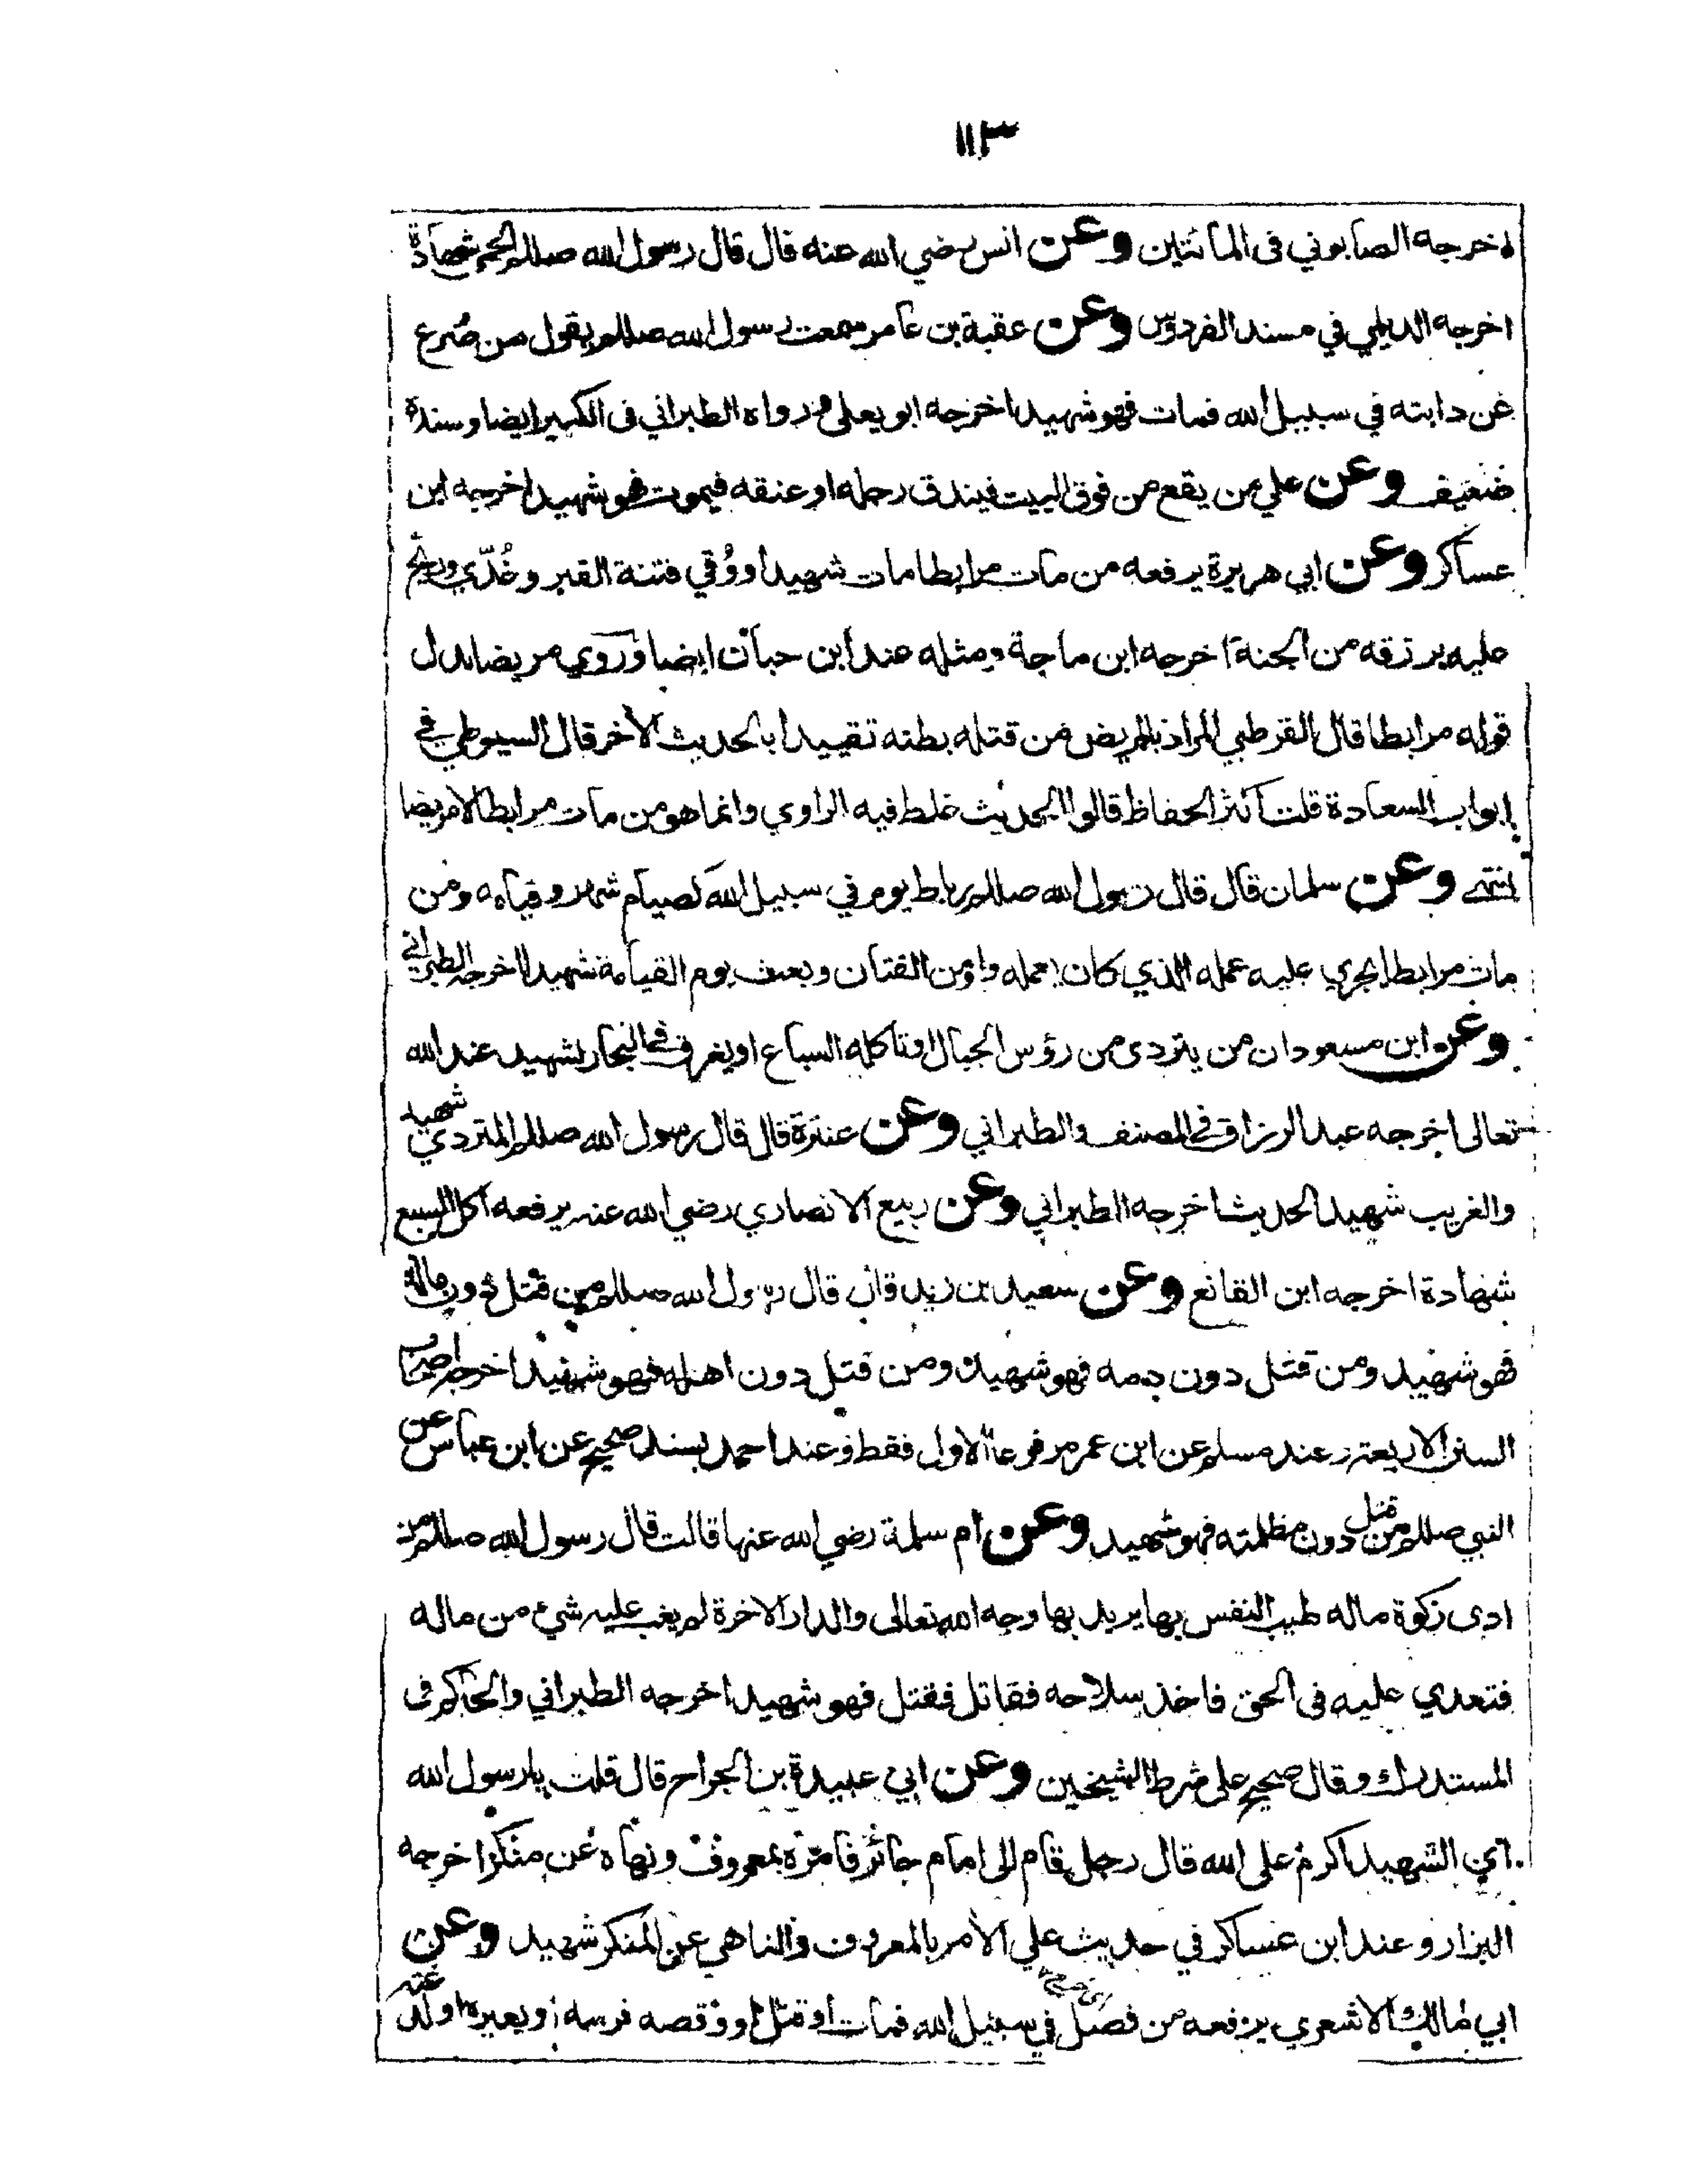 ١١٣
اخرجه الصابوني في المائتين وعن انس رضي الله عنه قال قال رسول الله صللم الحمى شهادة
اخرجه الديلمي في مسند الفردوس وعن عقبة بن عامر سمعت رسول الله صللم يقول من صُرع
عن دابته في سبيل الله فمات فهو شهيد اخرجه ابو يعلى ورواه الطبراني في الكبير ايضا وسنده
ضعيف وعن علي من يقع من فوق البيت فيندق رجله او عنقه فيموت فهو شهيد اخرجه ابن
عساكر وعن ابي هريرة يرفعه من مات مرابطا مات شهيدا ووُقي فتنة القبر وغُدّي وريح
عليه برزقه من الجنة اخرجه ابن ماجة ومثله عند ابن حبان ايضا وروي مريضا بدل
قوله مرابطا قال القرطبي المراد بالمريض من قتله بطنه تقييدا بالحديث الآخر قال السيوطي في
ابواب السعادة قلت اكثر الحفاظ قالوا الحديث غلط فيه الراوي وانما هو من مات مرابطا لا مريضا
انتهى وعن سلمان قال قال رسول الله صللم رباط يوم في سبيل الله كصيام شهر وقيامه ومن
مات مرابطا جرى عليه عمله الذي كان يعمله وأومن الفتان وبعث يوم القيامة شهيدا اخرجه الطبراني
وعن ابن مسعود ان من يتردى من رؤس الجبال او تاكله السباع او يغرق في البحار لشهيد عند الله
تعالى اخرجه عبد الرزاق في المصنف والطبراني وعن عنترة قال قال رسول الله صللم المتردي شهيد
والغريب شهيد الحديث اخرجه الطبراني وعن ربيع الانصاري رضي الله عنه يرفعه اكل السبع
شهادة اخرجه ابن القانع وعن سعيد بن زيد قال قال رسول الله صللم من قتل دون ماله
فهو شهيد ومن قتل دون دمه فهو شهيد ومن قتل دون اهله فهو شهيد اخرجه اصحاب
السنن الاربعة وعند مسلم عن ابن عمر مرفوعا الاول فقط وعند احمد بسند صحيح عن ابن عباس عن
النبي صللم من قتل دون مظلمته فهو شهيد وعن ام سلمة رضي الله عنها قالت قال رسول الله صللم من
ادى زكوة ماله طيب النفس بها يريد بها وجه الله تعالى والدار الاخرة لم يغب عليه شيء من ماله
فتعدي عليه في الحق فاخذ سلاحه فقاتل فقتل فهو شهيد اخرجه الطبراني والحاكم في
المستدرك وقال صحيح على شرط الشيخين وعن ابي عبيدة بن الجراح قال قلت يا رسول الله
اي الشهيد اكرم على الله قال رجل قام الى امام جائر فامره بمعروف ونهاه عن منكر اخرجه
البزار وعند ابن عساكر في حديث علي الآمر بالمعروف والناهي عن المنكر شهيد وعن
ابي مالك الاشعري يرفعه من فصل في سبيل الله فمات او قتل او وقصه فرسه او بعيره او لدغته